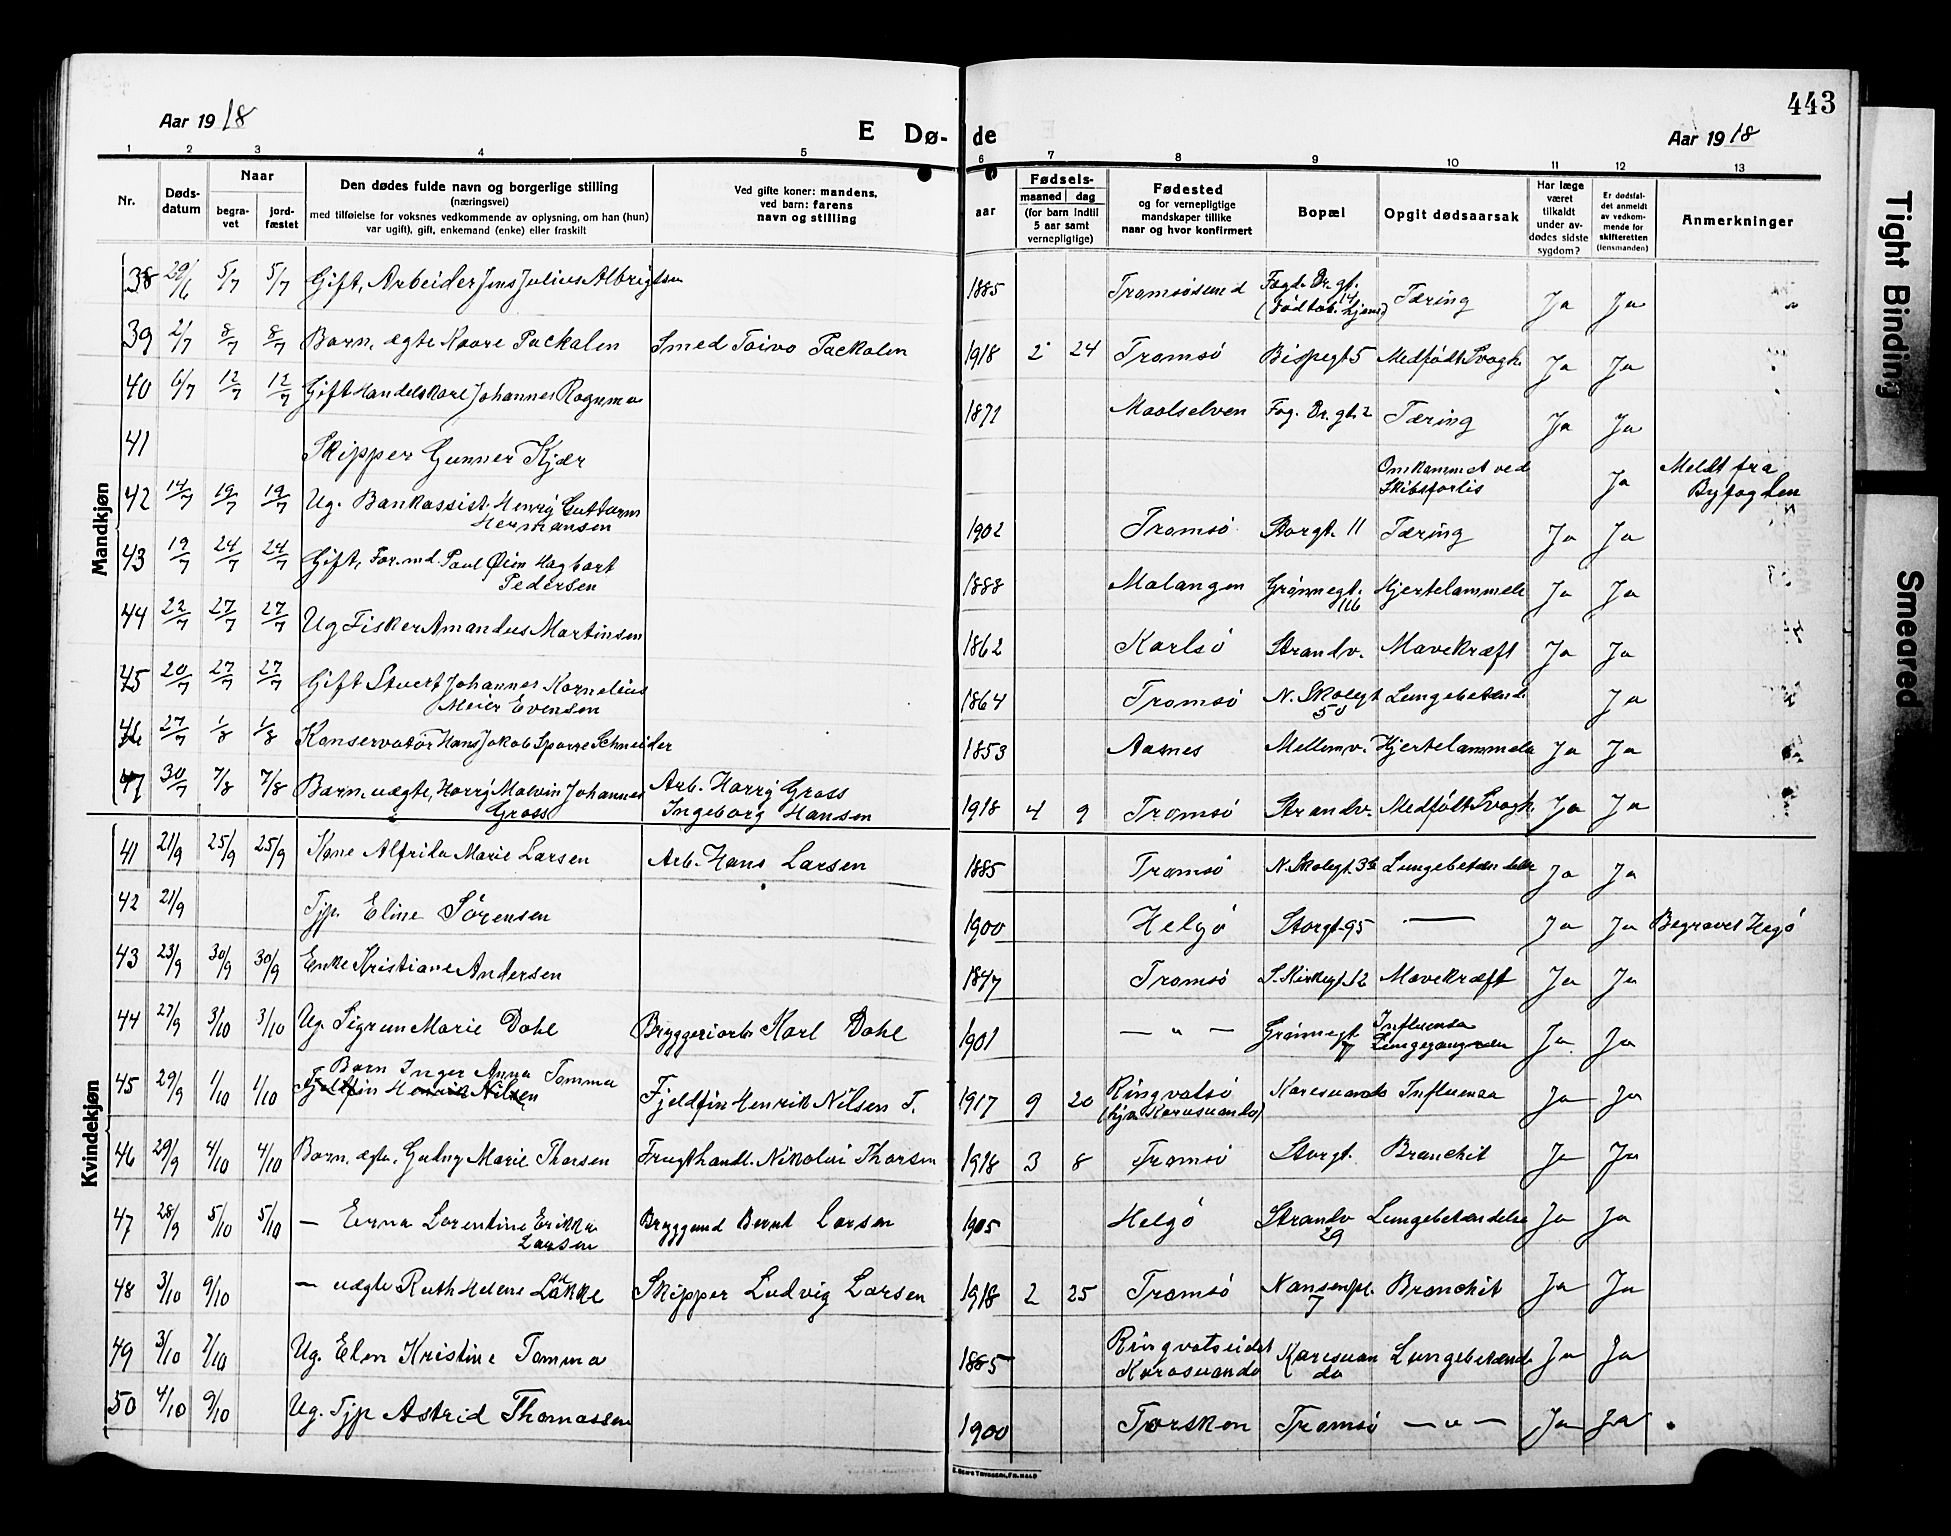 443
Aar 1918
E Dø-
de
Aar 1918
1 2 3 4 5 6 7 8 9 10 11 12 13
Nr.
Døds-
datum
Naar
begra-
vet
jord-
fæstet
Den dødes fulde navn og borgerlige stilling
(næringsvei)
med tilføielse for voksnes vedkommende av oplysning, om han (hun)
var ugift), gift, enkemand (enke) eller fraskilt
Ved gifte koner: mandens,
ved barn: farens
navn og stilling
Fødsels-
aar
maaned dag
(for barn indtil
5 aar samt
vernepligtige)
Fødested
og for vernepligtige
mandskaper tillike
naar og hvor konfirmert
Bopæl
Opgit dødsaarsak
Har læge
været
tilkaldt
under av-
dødes sidste
sygdom?
Er dødsfal-
det anmeldt
av vedkom-
mende for
skifteretten
(lensmanden)
Anmerkninger
Mandkjøn
38 29/6 5/7 5/7 Gift, Arbeider Jens Julius Albrigtsen 1885 Tromsøsund Fogd. Dr. gt. 14 (Fødtob. hjem) Tæring Ja Ja
39 2/7 8/7 8/7 Barn, ægte Kaare Packalen Smed Toivo Packalen 1918 2 24 Tromsø Bispegt 5 Medfødt Svagh. Ja Ja
40 6/7 12/7 12/7 Gift Handelskarl Johannes Rognmo 1871 Maalselven Fog. Dr. gt. 2 Tæring Ja Ja
41 Skipper Gunner Kjær Omkommet ved Skibsforlis Ja Meldt fra Byfogden
42 14/7 19/7 19/7 Ug. Bankassist. Henry Guttorm Hermansen 1902 Tromsø Storgt. 11 Tæring Ja Ja
43 19/7 24/7 24/7 Gift, For.md. Paul Øien Hagbart Pedersen 1888 Malangen Grønnegt. 116 Hjertelammelse Ja Ja
44 22/7 27/7 27/7 Ug Fisker Amandus Martinsen 1862 Karlsø Strandv. Mavekræft Ja Ja
45 20/7 27/7 27/7 Gift Stuert Johannes Kornelius Meier Evensen 1864 Tromsø N. Skolegt 50 Lungebetænd. Ja
46 27/7 1/8 1/8 Konservator Hans Jakob Sparre Schneider 1853 Aasnes Mellemv. Hjertelammelse Ja Ja
47 30/7 7/8 7/8 Barn, uægte, Harry Malvin Johannes Gross Arb. Harry Gross Ingeborg Hansen 1918 4 9 Tromsø Strandv. Medfødt Svagh. Ja Ja
Kvindekjøn
41 21/9 25/9 25/9 Kone Alfrida Marie Larsen Arb. Hans Larsen 1885 Tromsø N. Skolegt. 36 Lungebetændelse Ja Ja
42 21/9 Tjp. Eline Sørensen 1900 Helgø Storgt. 95 — Ja Ja Begravet Hegø
43 23/9 30/9 30/9 Enke Kristiane Andersen 1847 Tromsø S. Kirkegt. 12 Mavekræft Ja Ja
44 27/9 3/10 3/10 Ug. Sigrun Marie Dahl Bryggeriarb. Karl Dahl 1901 — " — Grønnegt. 7 Influensa Lungegangræn Ja Ja
45 29/9 1/10 1/10 Barn Inger Anna Tomma Fjeldfin Henrik Nilsen Fjeldfin Henrik Nilsen T. 1917 9 20 Ringvatsø (hjm Karesuando) Karesuando Influensa Ja Ja
46 29/9 4/10 4/10 Barn, ægte, Gudny Marie Thorsen Frugthandl. Nikolai Thorsen 1918 3 8 Tromsø Storgt. Bronchit Ja Ja
47 28/9 5/10 5/10 — Erna Lorentine Erikka Larsen Bryggemd Bernt Larsen 1905 Helgø Strandv 29 Lungebetændelse Ja Ja
48 3/10 9/10 — uægte Ruth Helene Løkke Skipper Ludvig Larsen 1918 2 25 Tromsø Nansenpl. 7 Bronchit Ja Ja
49 3/10 7/10 Ug. Elen Kristine Tomma 1885 Ringvatseidet Karasuando Karesuando Lungebetænd. Ja Ja
50 4/10 9/10 Ug. Tjp Astrid Thomassen 1900 Torsken Tromsø — " — Ja Ja
Tight Binding
Smeared